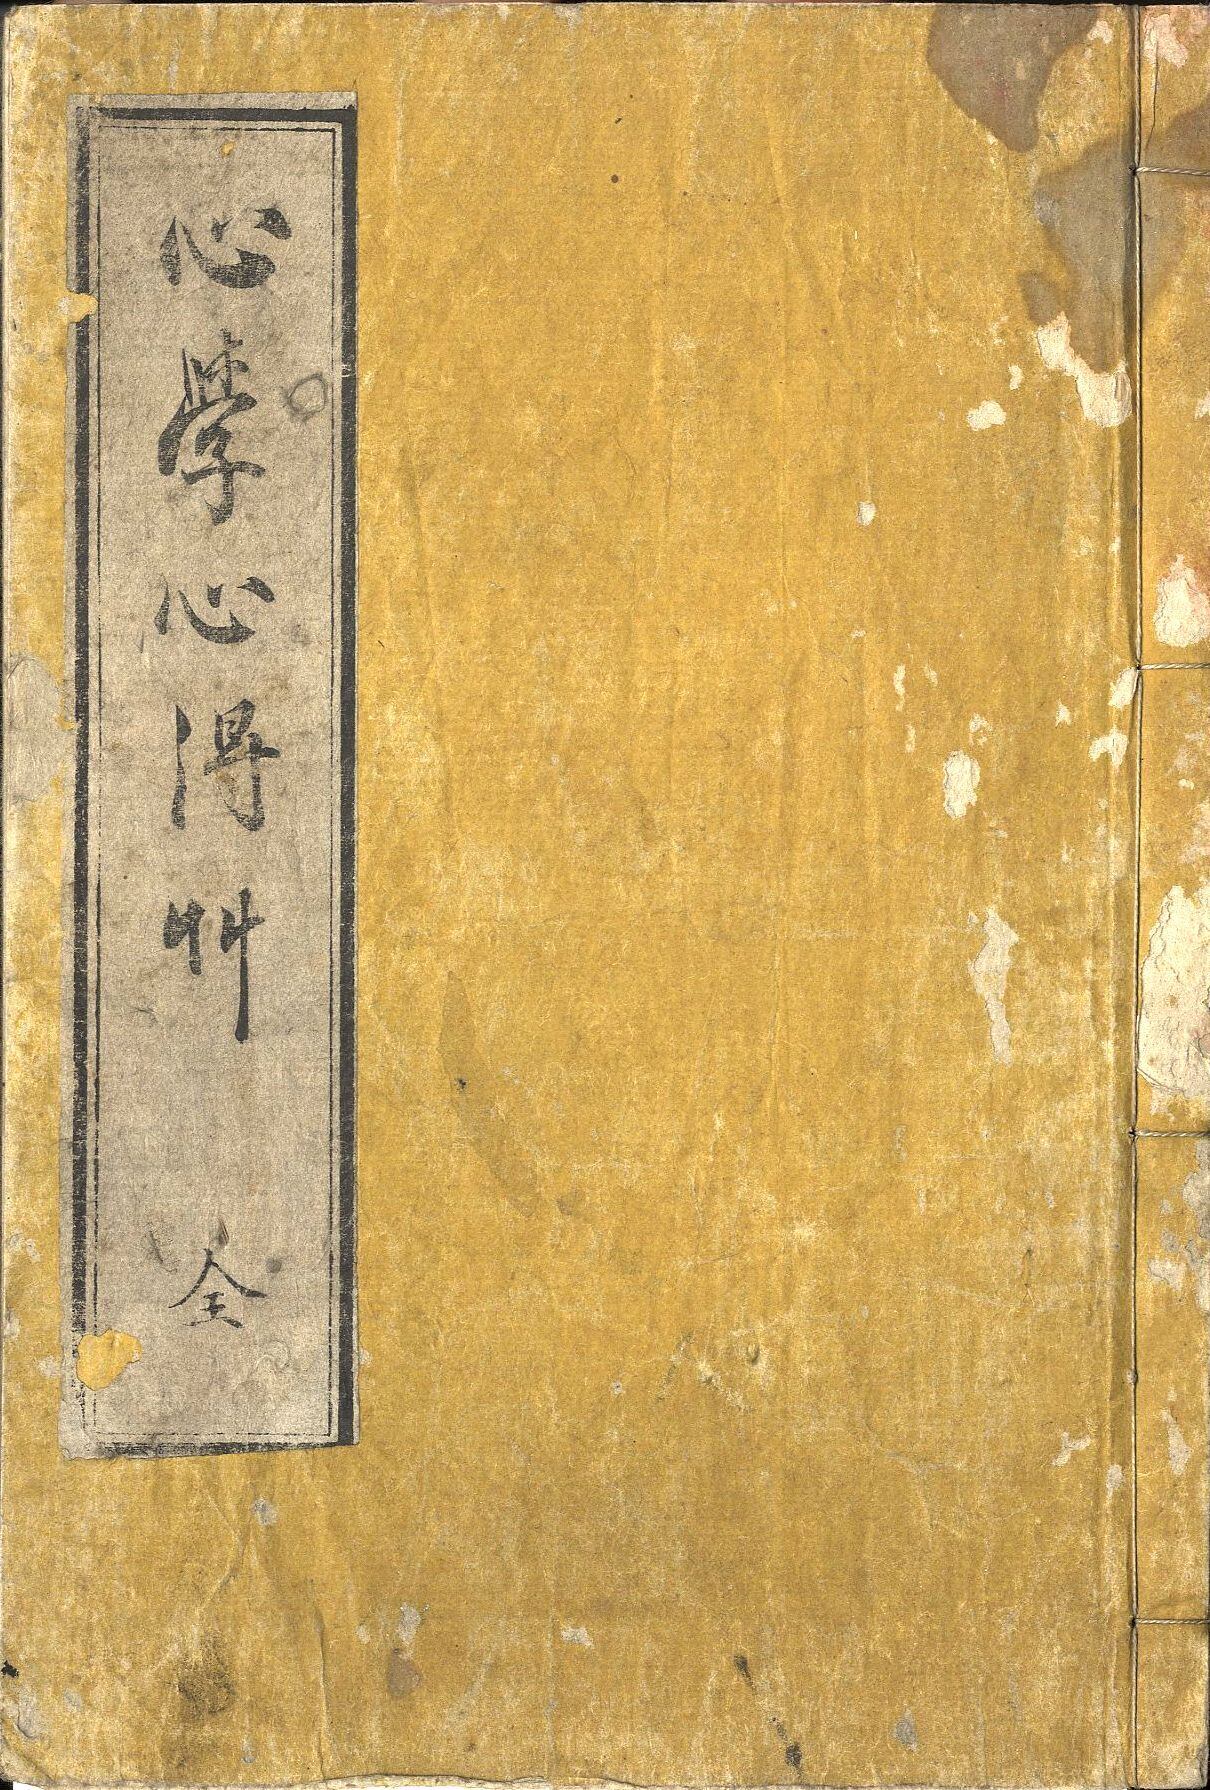 心學心得艸 全